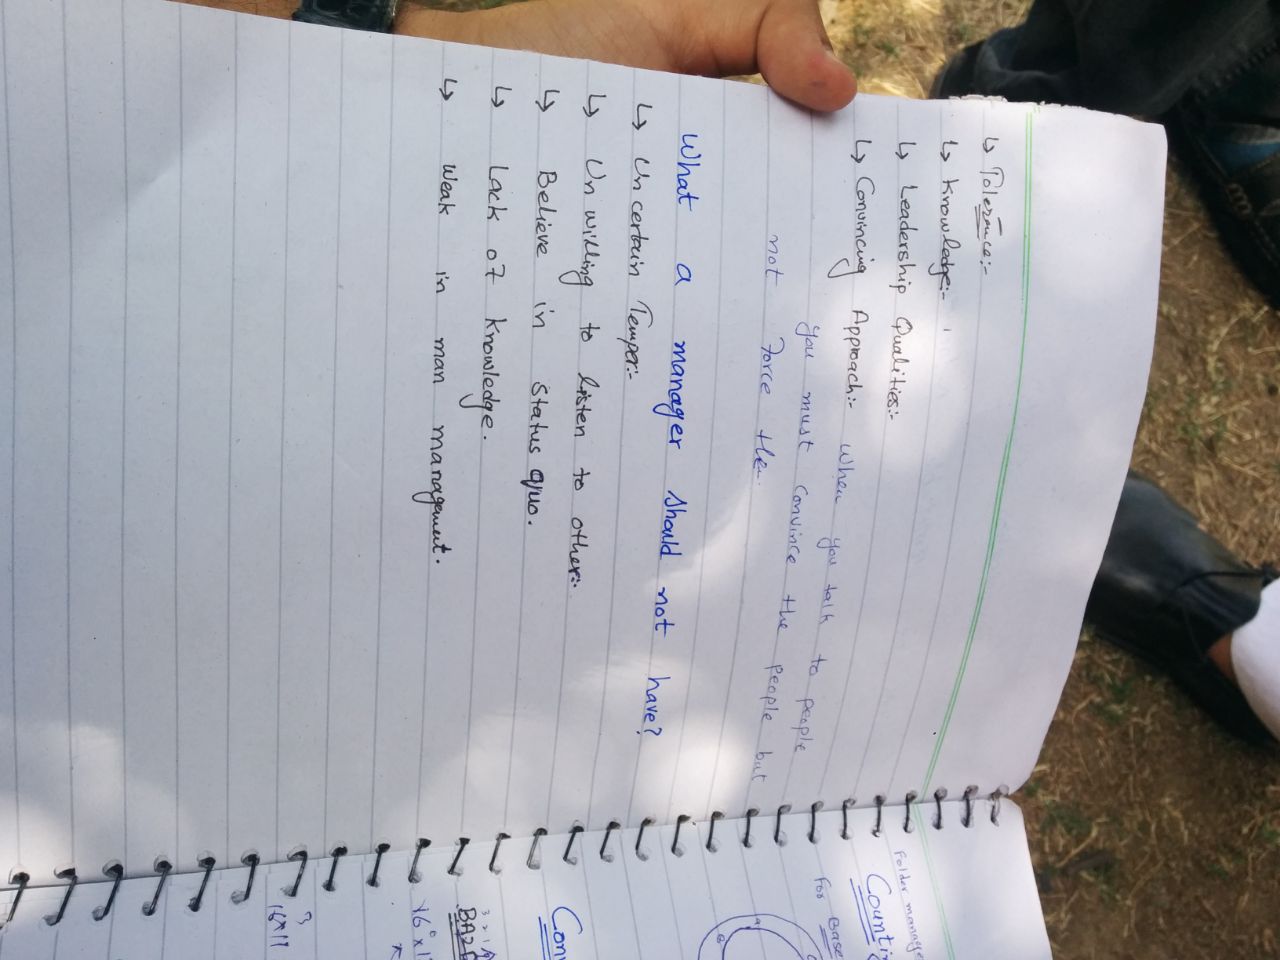 ↳ Tolerance:-
↳ Knowledge:-
↳ Leadership Qualities:-
↳ Convincing Approach:- When you talk to people
you must convince the people but
not Force
What a manager should not have?
↳ Un certain Temper:-
↳ Un willing to listen to other:-
↳ Believe in status quo.
↳ Lack of Knowledge.
↳ Weak in man management.
Folder
For Base
16x11